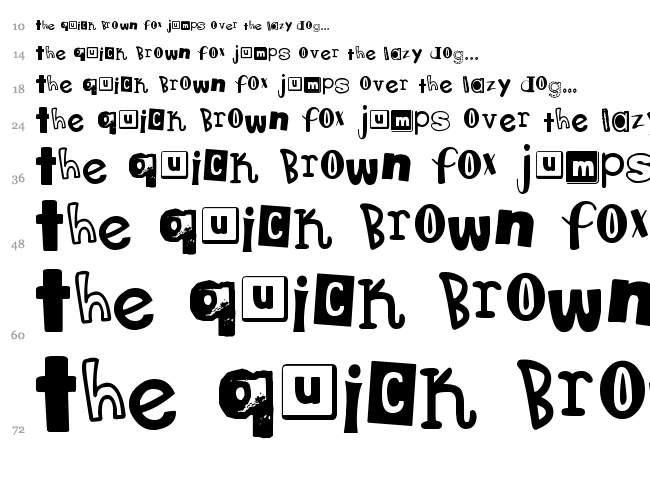 10 the quick brown fox jumps over the lazy dog...
14 the quick brown fox jumps over the lazy dog...
18 the quick brown fox jumps over the lazy dog...
24 the quick brown fox jumps over the lazy
36 the quick brown fox jumps
48 the quick brown fox
60 the quick brown
72 the quick bro